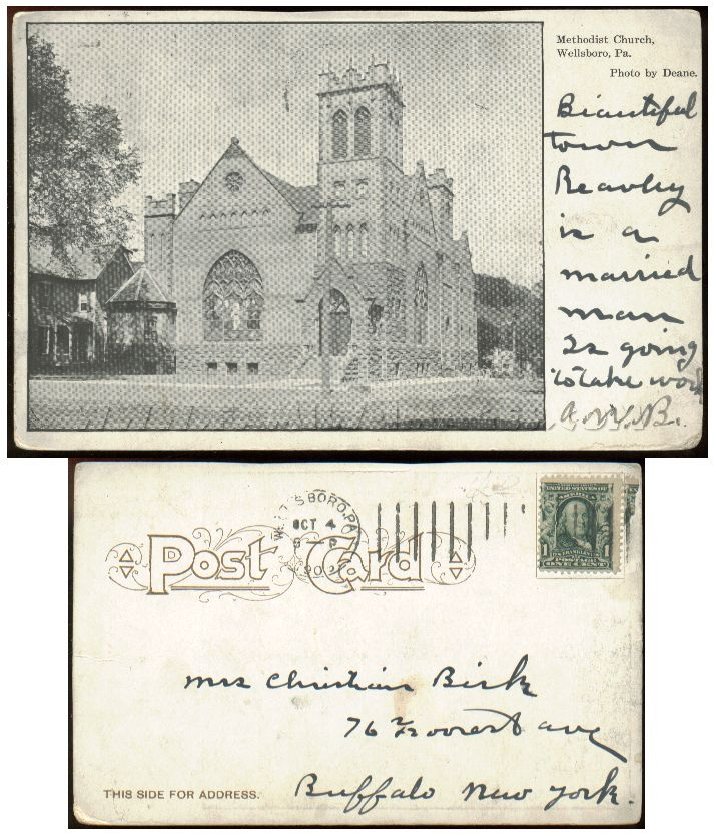 Methodist Church,
Wellsboro, Pa.
Photo by Deane.
Beautiful
town
Beavley
is a
married
man
Is going
to take work
A.W.B.
WELLSBORO, PA.
OCT 4
Post Card
UNITED STATES OF
AMERICA
1
FRANKLIN
POSTAGE
ONE CENT
Mrs Christian Birk
76 Foorest ave
Buffalo New York.
THIS SIDE FOR ADDRESS.